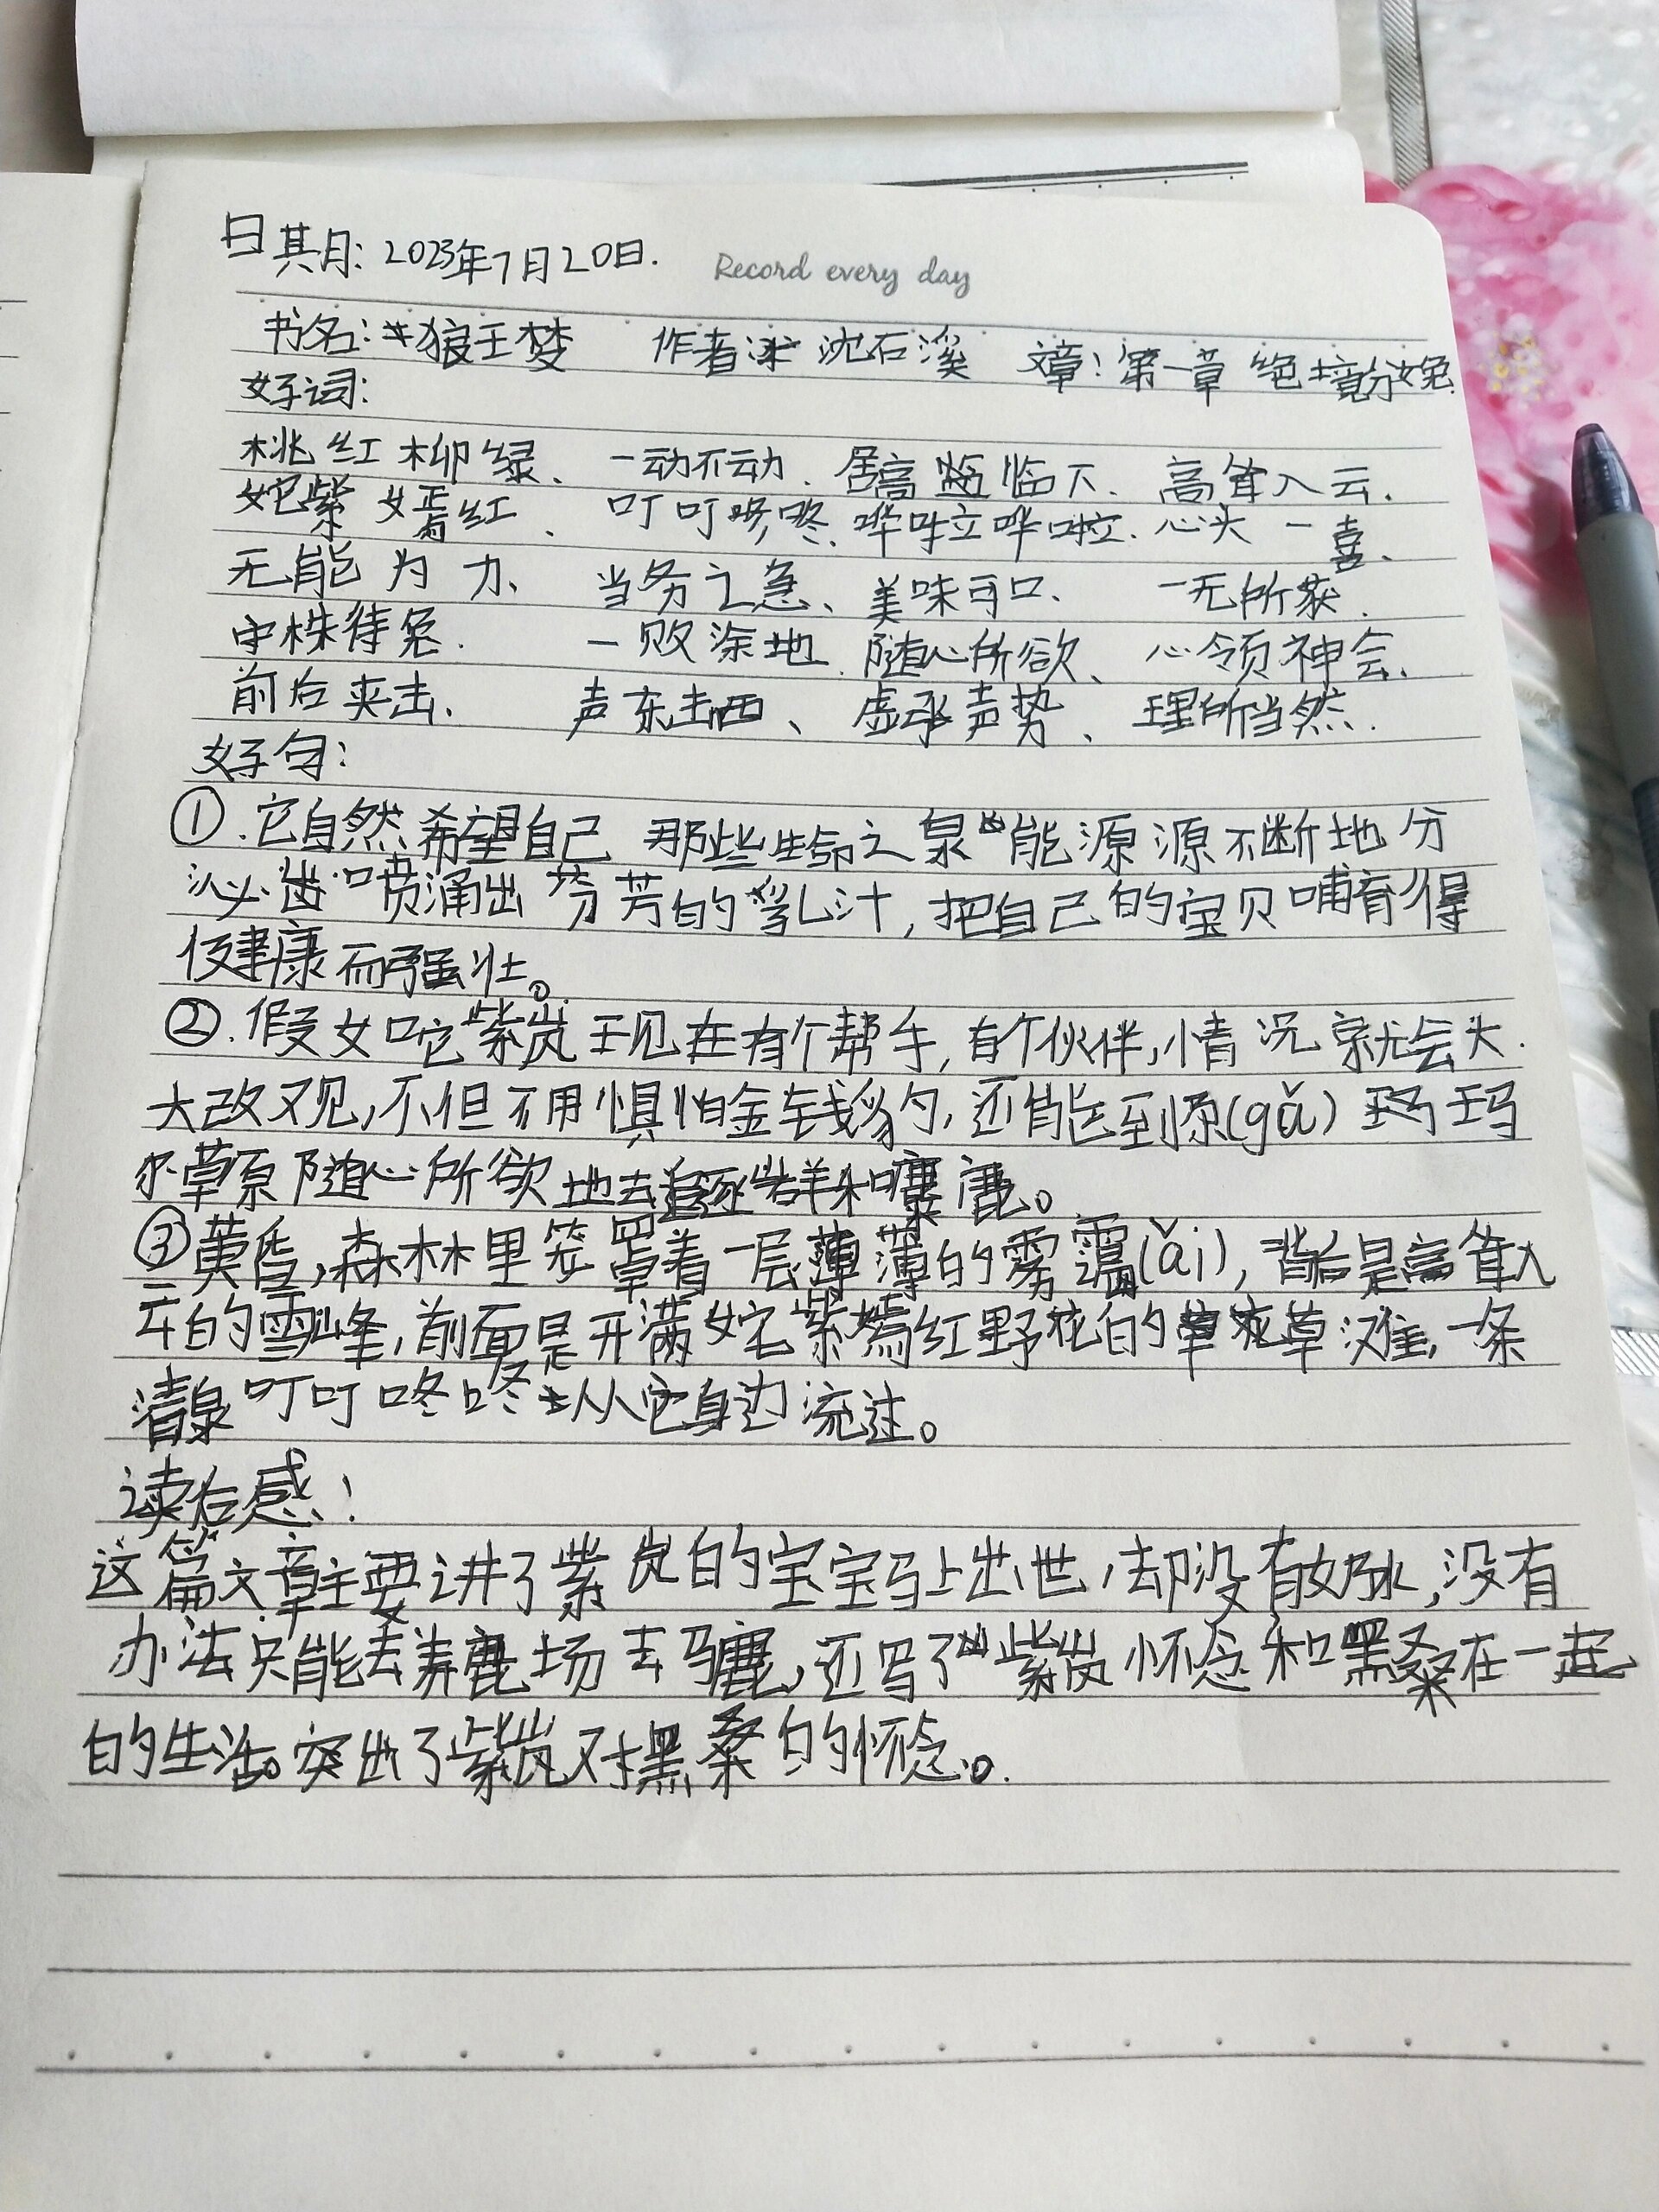 日期: 2023年7月20日.
Record every day
书名: 狼王梦 作者: 沈石溪 文章: 第一章 绝境分娩
好词:
桃红柳绿、一动不动、居高临下、高耸入云、
姹紫嫣红、叮叮咚咚、哗啦哗啦、心头一喜、
无能为力、当务之急、美味可口、一无所获、
守株待兔、一败涂地、随心所欲、心领神会、
前后夹击、声东击西、虚承声势、理所当然.
好句:
①.它自然希望自己那些生命之泉能源源不断地分
泌喷涌出芬芳的乳汁,把自己的宝贝哺育得
健康而强壮。
②.假女咜紫岚现在有个帮手,有个伙伴,情况就会大.
大改观,不但不用惧怕金钱豹,还能到尕(gǎ)玛玛
尔草原随心所欲地去追逐岩羊和麋鹿。
③黄昏,森林里笼罩着一层薄薄的雾霭(ǎi),背后是高耸入
云的雪峰,前面是开满姹紫嫣红野花的草滩,一条
清泉叮叮咚咚从它身边流过。
读后感:
这篇文章主要讲了紫岚的宝宝马上出世,却没有奶水,没有
办法只能去养鹿场去马鹿,还写了紫岚怀念和黑桑在一起
的生活。突出了紫岚对黑桑的怀念。